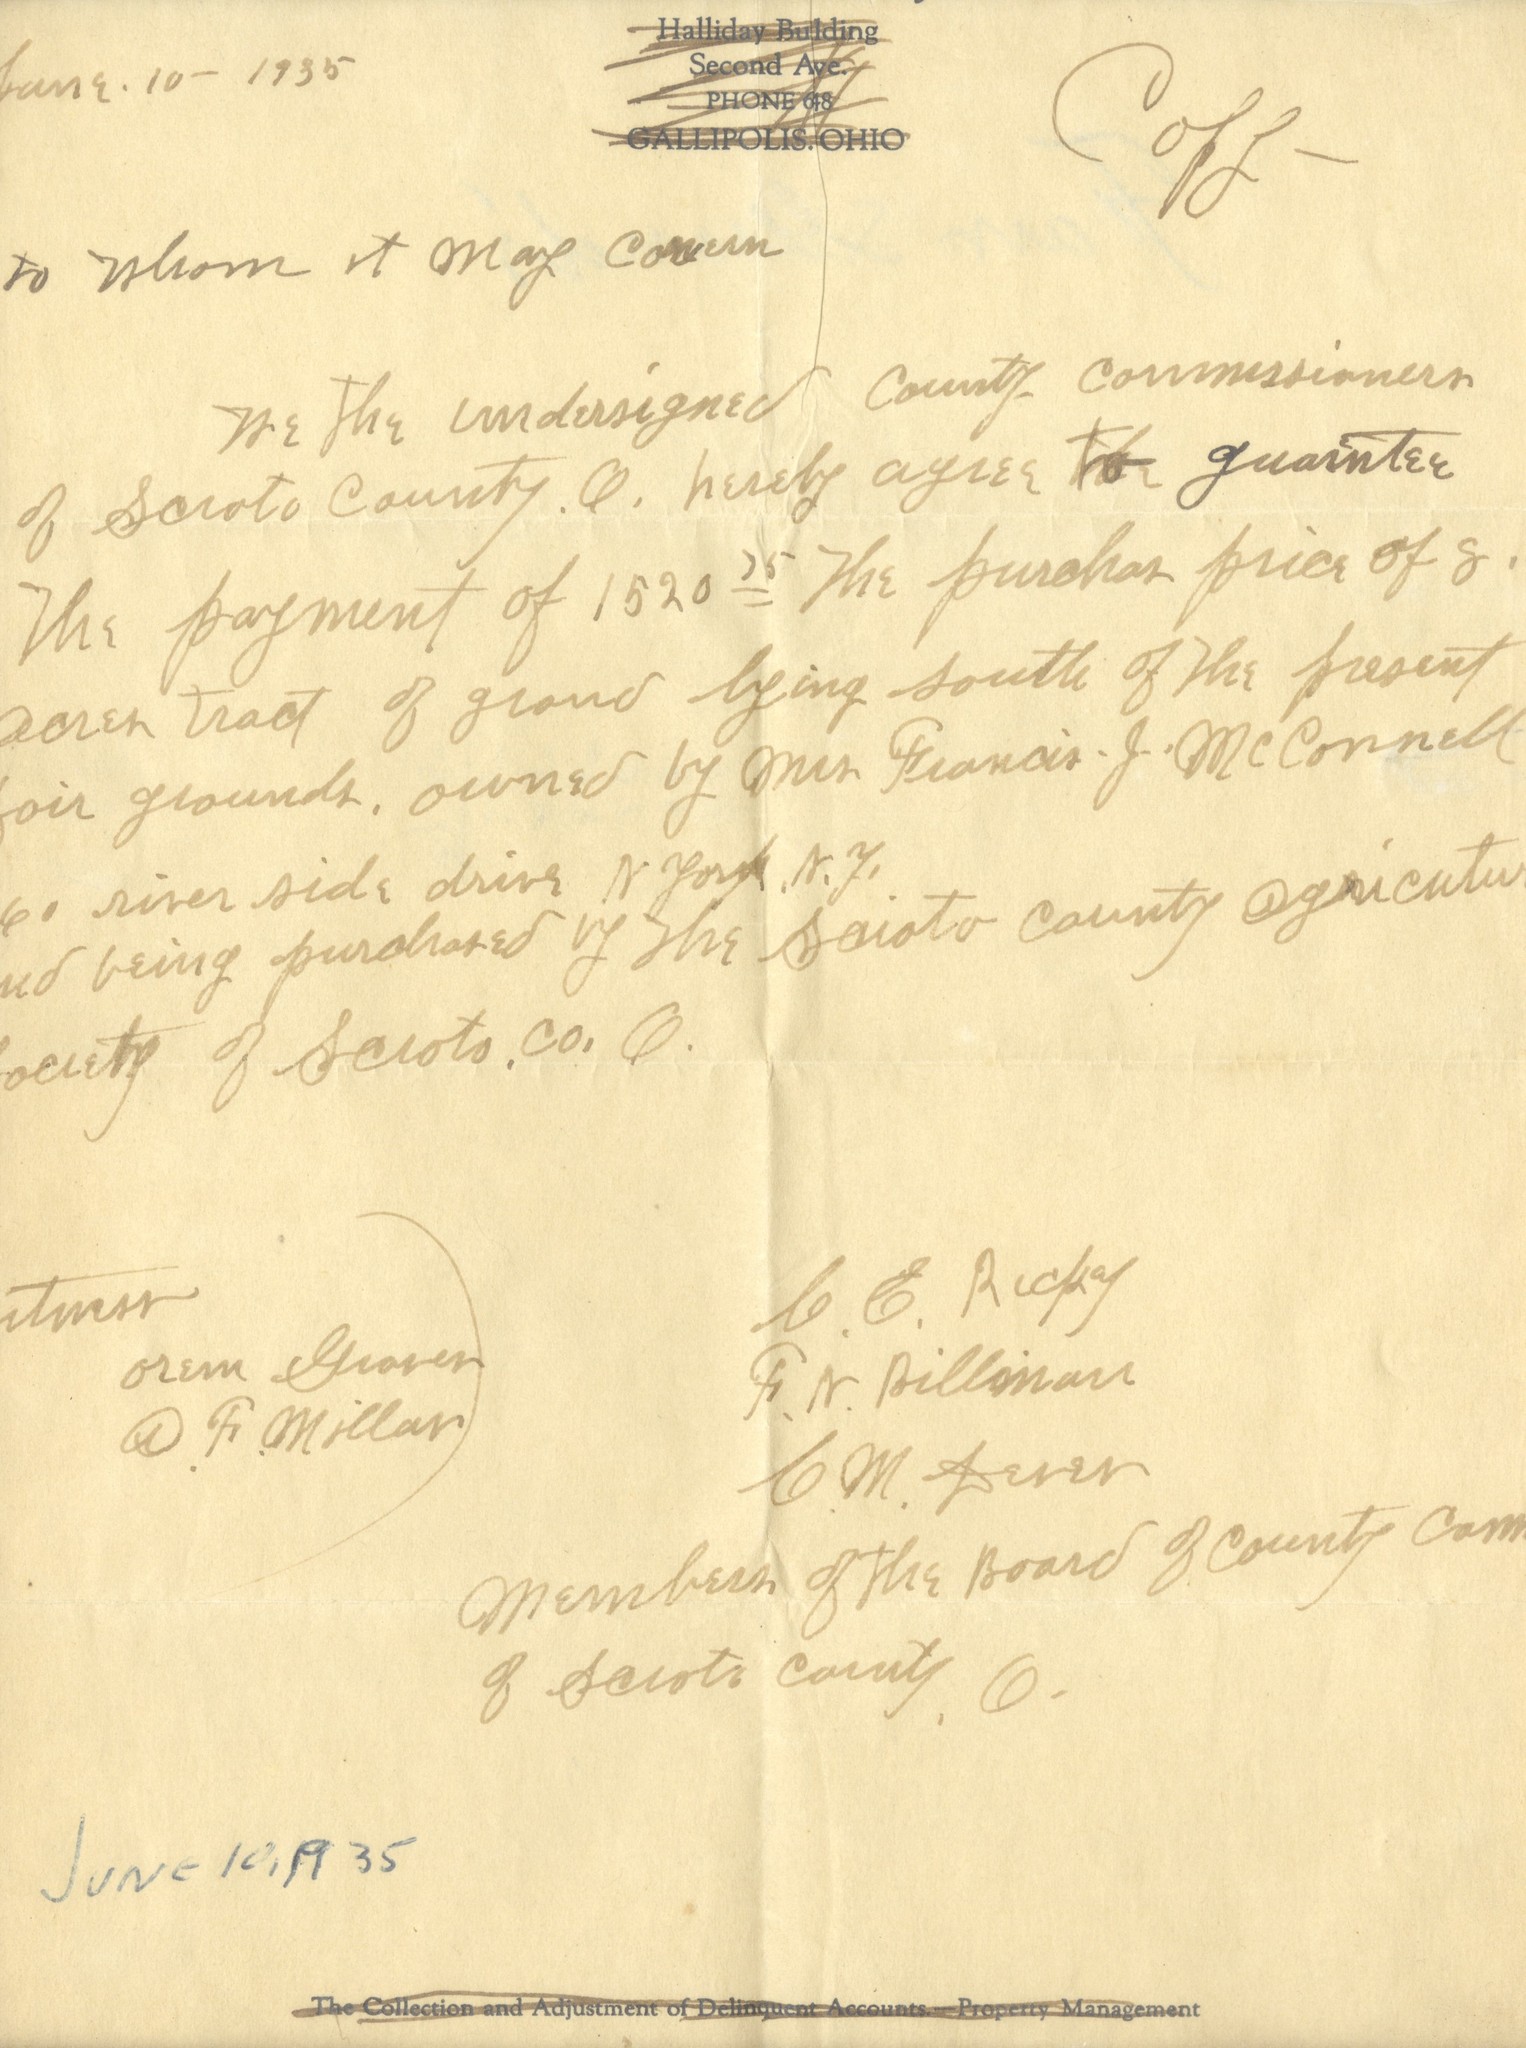 Halliday Building
Second Ave.
PHONE 648
GALLIPOLIS, OHIO
June. 10 - 1935
Copy -
to Whom it May Concern
We the undersigned County Commissioners
of Scioto County. O. hereby agree to guarntee
The payment of 1520 75 The purchas price of 8.
acres tract of ground lying south of the present
fair grounds. owned by Mrs Francis. J. McConnell
60 river side drive N York. N.Y.
and being purchased by the Scioto County Agricutur
Society of Scioto. Co. O.
itness
orem Graves
A. F. Millar
C. E. Rickey
F. N. Billman
C. M. Dever
Members of the Board of County Comm
of Scioto County. O.
JUNE 10, 1935
The Collection and Adjustment of Delinquent Accounts.—Property Management